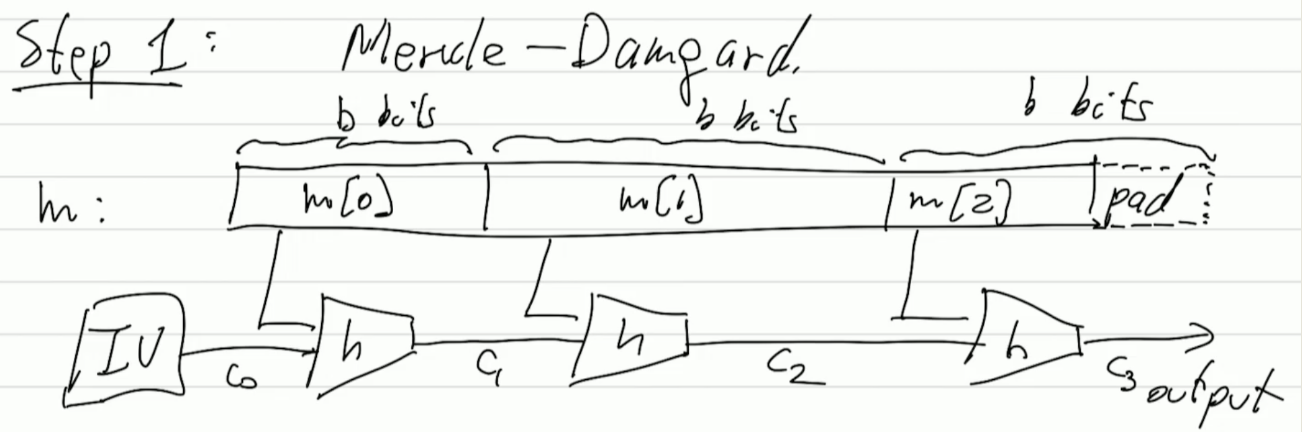 Step 1: Merkle-Damgard.
b bits b bits b bits
m: m[0] m[1] m[2] pad
IV h h h
c0 c1 c2 c3 output